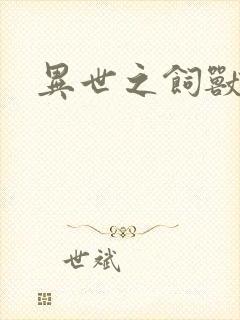 異世之飼獸
世斌